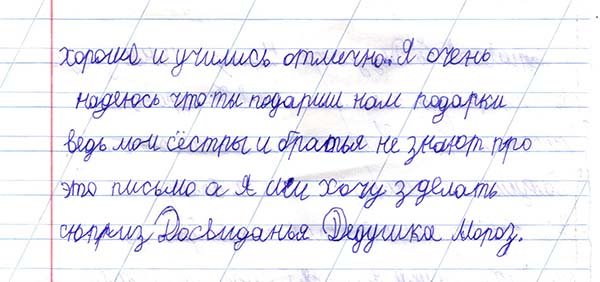 хорошо и учились отлично. Я очень
надеюсь что ты подариш нам подарки
ведь мои сёстры и братья не знают про
это письмо а я им хочу зделать
сюприз Досвиданья Дедушка Мороз.